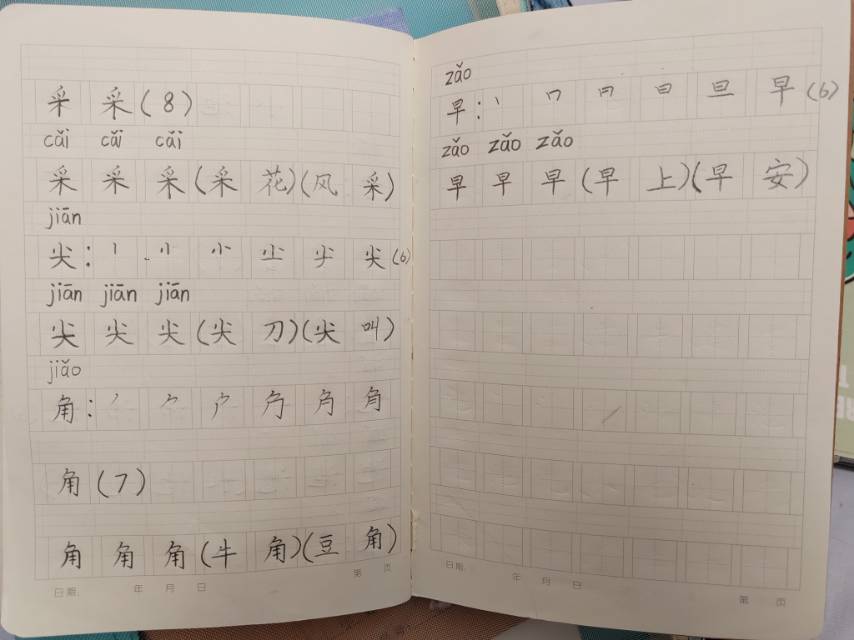 采 采(8)
cǎi cǎi cǎi
采 采 采(采 花)(风 采)
jiān
尖: 丨 小 尘 尖(6)
jiān jiān jiān
尖 尖 尖(尖 刀)(尖 叫)
jiǎo
角: 丿 𠂊 角
角(7)
角 角 角(牛 角)(豆 角)
日期. 年 月 日 第 页
zǎo
早: 丶 日 旦 早(6)
zǎo zǎo zǎo
早 早 早(早 上)(早 安)
日期. 年 月 日 第 页